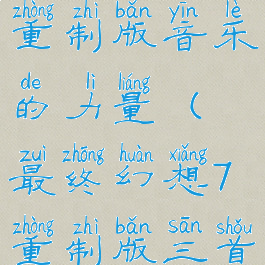 zhòng zhì bǎn yīn lè
重 制 版 音 乐
de lì liáng
的 力 量 (
zuì zhōng huàn xiǎng
最 终 幻 想 7
zhòng zhì bǎn sān shǒu
重 制 版 三 首